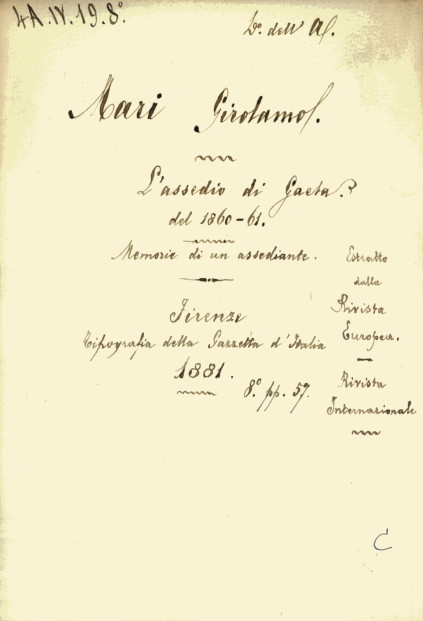 4A.IV.19.8°.
D°. dell' A.
Mari Girolamo.
L'assedio di Gaeta.
del 1860-61.
Memorie di un assediante.
Estratto
dalla
Rivista
Europea.
Rivista
Internazionale
Firenze
Tipografia della Gazzetta d'Italia
1881.
8°. pp. 57.
C